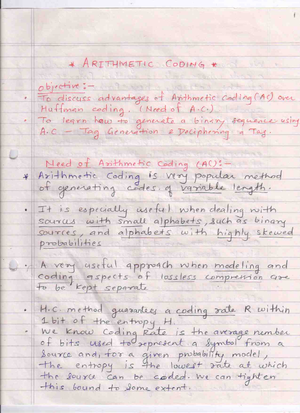 * ARITHMETIC CODING *
Objective:-
• To discuss advantages of Arithmetic Coding (AC) over
Huffman coding. (Need of A.C.)
• To learn how to generate a binary sequence using
A.C - Tag Generation & Deciphering a Tag.
Need of Arithmetic Coding (AC):-
* Arithmetic Coding is very popular method
of generating codes of variable length.
• It is especially useful when dealing with
sources with small alphabets, such as binary
sources, and alphabets with highly skewed
probabilities
• A very useful approach when modeling and
coding aspects of lossless compression are
to be kept separate
• H.C. method guarantees a coding rate R within
1 bit of the entropy H.
• We know Coding Rate is the average number
of bits used to represent a symbol from a
source and, for a given probability model,
the entropy is the lowest rate at which
the source can be coded. We can tighten
this bound to some extent.